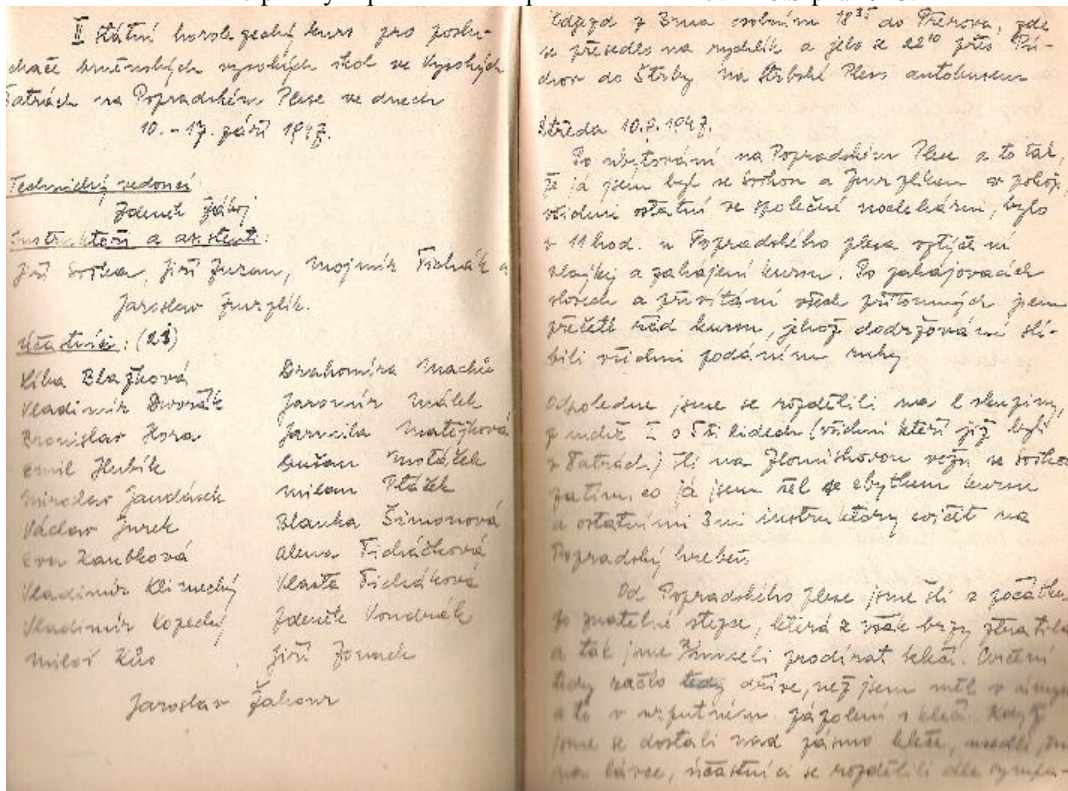 II státní horolezecký kurs pro poslu-
chače brněnských vysokých škol ve Vysokých
Tatrách na Popradském Plese ve dnech
10. - 17. září 1947.
Technický vedoucí:
Zdeněk
Instruktoři a asistenti:
Jiří Sochor, Jiří Juran, Mojmír Ticháček a
Jaroslav Jurzlík.
Účastníci: (21)
Líba Blažková
Vladimír Dvořák
Bronislav Hora
Emil Hlubík
Miroslav Jandásek
Václav Jurek
Eva Kaubková
Vladimír Klimecký
Vladimír Kopecký
Miloš Kůs
Drahomíra Machů
Jaromír Málek
Jarmila Matějková
Dušan Motáček
Milan Ptáček
Blanka Šimonová
Alena Ticháčková
Vlasta Ticháková
Zdeněk Vondrák
Jiří
Jaroslav Žahour
Odjezd z Brna osobním 18 35 do Přerova, zde
se přesedlo na rychlík a jelo se 22 10 přes
do Štrby na Štrbské Pleso autobusem
Středa 10.9.1947.
Po ubytování na Popradském Plese a to tak,
že já jsem byl se Sochou a Jurzlíkem v pokoji,
všichni ostatní ve společné noclehárni, bylo
v 11 hod. u Popradského plesa vztyčení
vlajky a zahájení kursu. Po zahajovacích
slovech a přivítání všech přítomných jsem
přečetl řád kursu, jehož dodržování slí-
bili všichni podáním ruky.
Odpoledne jsme se rozdělili na 2 skupiny,
z nichž I o 5ti lidech (všichni kteří již byli
v Tatrách) šli na Zlomiskovou věž se Sochou
zatím, co já jsem šel se zbytkem kursu
a ostatními 3mi instruktory cvičit na
Popradský hřeben.
Od Popradského plesa jsme šli z počátku
po znatelné stezce, která se však brzy ztratila
a tak jsme museli prodírat klečí. Cvičení
tedy začlo dříve, než jsem měl v úmyslu
a to v urputném zápolení s klečí. Když
jsme se dostali nad pásmo kleče, usedli jsme
na lávce, účastníci se rozdělili dle sympa-